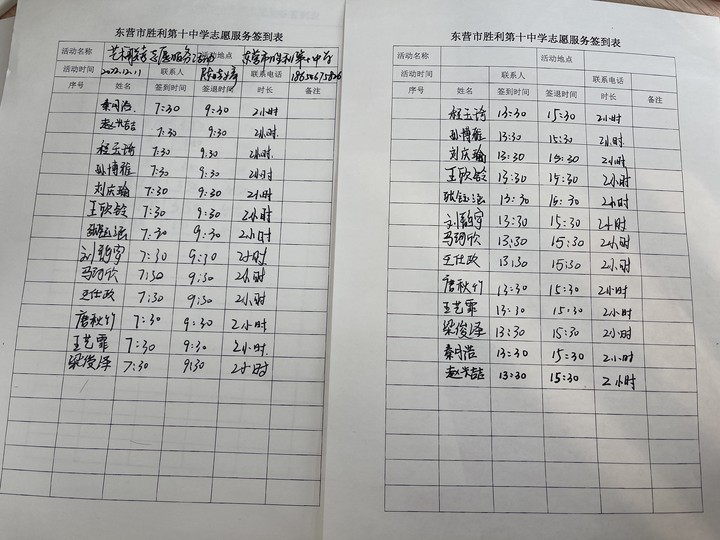 东营市胜利第十中学志愿服务签到表
活动名称 艺术联考志愿服务活动 活动地点 东营市胜利第十中学
活动时间 2022.12.11 联系人 联系电话
序号 姓名 签到时间 签退时间 时长 备注
秦同浩 7:30 9:30 2小时
赵米喆 7:30 9:30 2小时
程玉琦 7:30 9:30 2小时
孙博雅 7:30 9:30 2小时
刘庆瑜 7:30 9:30 2小时
王欣龄 7:30 9:30 2小时
张钰涵 7:30 9:30 2小时
刘静宇 7:30 9:30 2小时
马珂欣 7:30 9:30 2小时
王仕政 7:30 9:30 2小时
唐秋竹 7:30 9:30 2小时
王艺霏 7:30 9:30 2小时
梁俊泽 7:30 9:30 2小时
东营市胜利第十中学志愿服务签到表
活动名称 活动地点
活动时间 联系人 联系电话
序号 姓名 签到时间 签退时间 时长 备注
程玉琦 13:30 15:30 2小时
孙博雅 13:30 15:30 2小时
刘庆瑜 13:30 15:30 2小时
王欣龄 13:30 15:30 2小时
张钰涵 13:30 15:30 2小时
刘静宇 13:30 15:30 2小时
马珂欣 13:30 15:30 2小时
王仕政 13:30 15:30 2小时
唐秋竹 13:30 15:30 2小时
王艺霏 13:30 15:30 2小时
梁俊泽 13:30 15:30 2小时
秦同浩 13:30 15:30 2小时
赵米喆 13:30 15:30 2小时